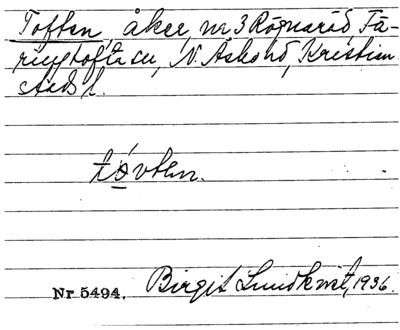 Toften, åker, nr 3 Rögnaröd, Fä-
ringtofta sn, N. Åsbo hd, Kristian-
stads l.
tòvten.
Nr 5494. Birgit Lundkvist, 1936.